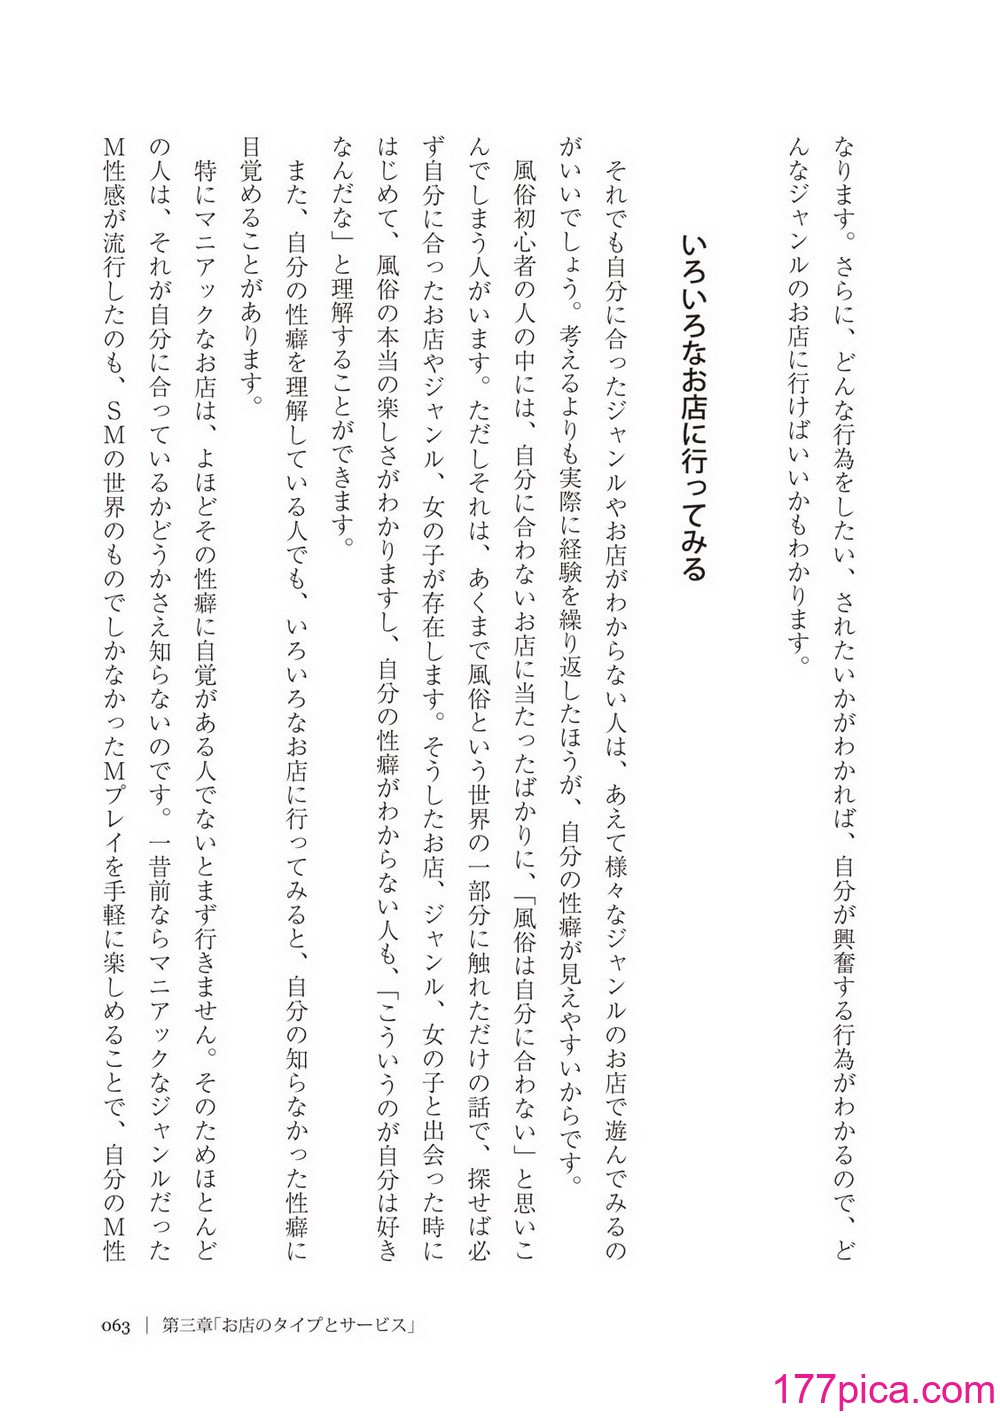 なります。さらに、どんな行為をしたい、されたいかがわかれば、自分が興奮する行為がわかるので、ど
んなジャンルのお店に行けばいいかもわかります。
いろいろなお店に行ってみる
それでも自分に合ったジャンルやお店がわからない人は、あえて様々なジャンルのお店で遊んでみるの
がいいでしょう。考えるよりも実際に経験を繰り返したほうが、自分の性癖が見えやすいからです。
風俗初心者の人の中には、自分に合わないお店に当たったばかりに、「風俗は自分に合わない」と思いこ
んでしまう人がいます。ただしそれは、あくまで風俗という世界の一部分に触れただけの話で、探せば必
ず自分に合ったお店やジャンル、女の子が存在します。そうしたお店、ジャンル、女の子と出会った時に
はじめて、風俗の本当の楽しさがわかりますし、自分の性癖がわからない人も、「こういうのが自分は好き
なんだな」と理解することができます。
また、自分の性癖を理解している人でも、いろいろなお店に行ってみると、自分の知らなかった性癖に
目覚めることがあります。
特にマニアックなお店は、よほどその性癖に自覚がある人でないとまず行きません。そのためほとんど
の人は、それが自分に合っているかどうかさえ知らないのです。一昔前ならマニアックなジャンルだった
M性感が流行したのも、SMの世界のものでしかなかったMプレイを手軽に楽しめることで、自分のM性
063 | 第三章「お店のタイプとサービス」
177pica.com